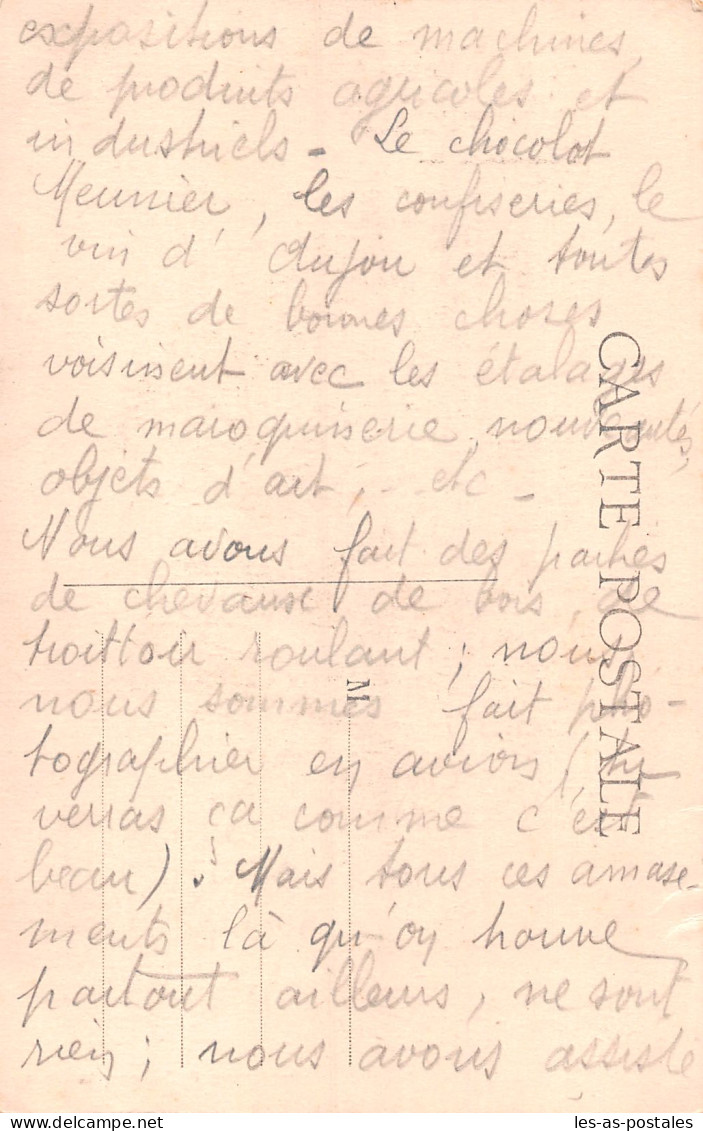 expositions de machines,
de produits agricoles et
industriels - Le chocolat
Meunier, les confiseries, le
vin d'Anjou et toutes
sortes de bonnes choses
voisinent avec les étalages
de maroquinerie, nouveautés,
objets d'art, etc -
Nous avons fait des parties
de chevaux de bois, de
trottoir roulant ; nous
nous sommes fait pho-
tographier en avion (tu
verras ça comme c'est
beau). Mais tous ces amuse-
ments là qu'on trouve
partout ailleurs, ne sont
rien ; nous avons assisté
CARTE POSTALE
M
les-as-postales